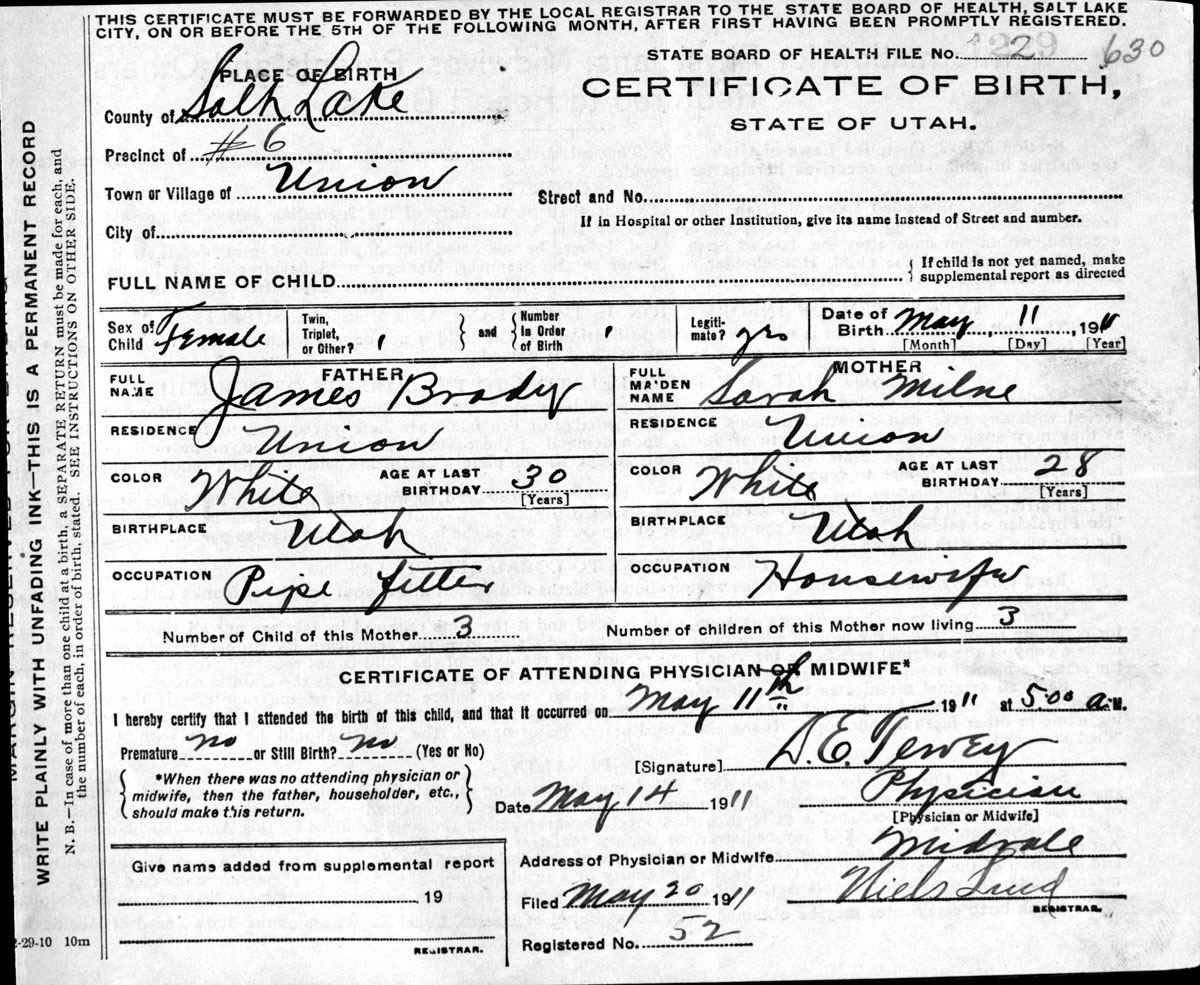 THIS CERTIFICATE MUST BE FORWARDED BY THE LOCAL REGISTRAR TO THE STATE BOARD OF HEALTH, SALT LAKE
CITY, ON OR BEFORE THE 5TH OF THE FOLLOWING MONTH, AFTER FIRST HAVING BEEN PROMPTLY REGISTERED.
STATE BOARD OF HEALTH FILE No. 2 630
1229
PLACE OF BIRTH
CERTIFICATE OF BIRTH,
STATE OF UTAH.
County of Salt Lake
Precinct of #6
Town or Village of Union
Street and No.
If in Hospital or other Institution, give its name instead of Street and number.
City of
FULL NAME OF CHILD { If child is not yet named, make
supplemental report as directed
Sex of Child Female
Twin, Triplet, or Other? 1 } and { Number in Order of Birth 1
Legitimate? yes
Date of Birth May 11, 1911
[Month] [Day] [Year]
FATHER
FULL NAME James Brady
RESIDENCE Union
COLOR White AGE AT LAST BIRTHDAY 30
[Years]
BIRTHPLACE Utah
OCCUPATION Pipe fitter
MOTHER
FULL MAIDEN NAME Sarah Milne
RESIDENCE Union
COLOR White AGE AT LAST BIRTHDAY 28
[Years]
BIRTHPLACE Utah
OCCUPATION Housewife
Number of Child of this Mother 3 Number of children of this Mother now living 3
CERTIFICATE OF ATTENDING PHYSICIAN OR MIDWIFE*
I hereby certify that I attended the birth of this child, and that it occurred on May 11th 1911 at 5:00 a.M.
Premature no or Still Birth? no (Yes or No)
[Signature] D.E.
{ *When there was no attending physician or
midwife, then the father, householder, etc.,
should make this return. }
Date May 14 1911 Physician
[Physician or Midwife]
Give name added from supplemental report
19
REGISTRAR.
Address of Physician or Midwife Midvale
Filed May 20 1911 Niels Lind
REGISTRAR.
Registered No. 52
2-29-10 10m
WRITE PLAINLY WITH UNFADING INK—THIS IS A PERMANENT RECORD
N. B.—In case of more than one child at a birth, a SEPARATE RETURN must be made for each, and
the number of each, in order of birth, stated. SEE INSTRUCTIONS ON OTHER SIDE.